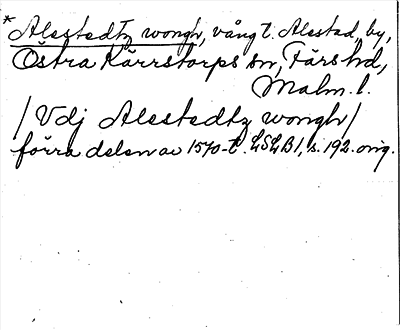 * Alestedtz wongh, vång t. Alestad, by,
Östra Kärrstorps sn, Färs hd,
Malm. l.
/Vdj Alestedtz wongh/
förra delen av 1570-t. LSLB1, s. 192. orig.